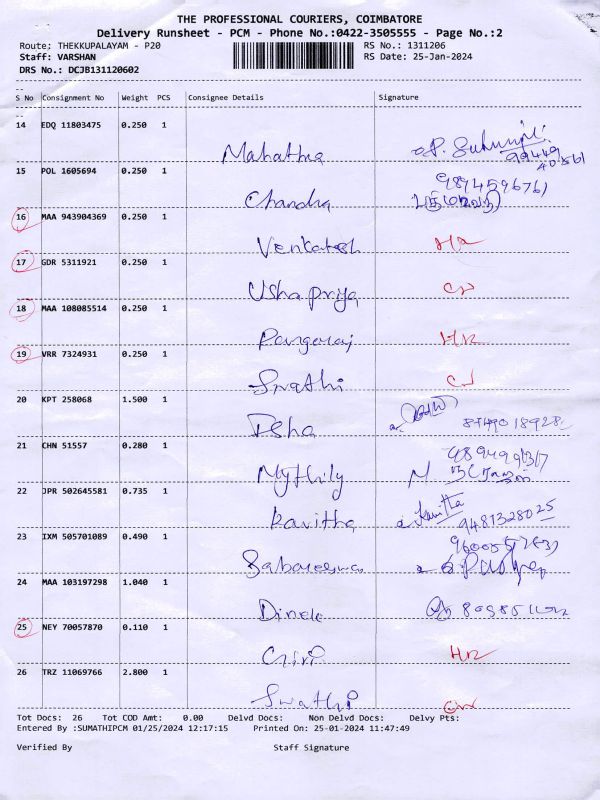 THE PROFESSIONAL COURIERS, COIMBATORE
Delivery Runsheet - PCM - Phone No.:0422-3505555 - Page No.:2
Route; THEKKUPALAYAM - P20 RS No.: 1311206
Staff: VARSHAN RS Date: 25-Jan-2024
DRS No.: DCJB131120602
S No Consignment No Weight PCS Consignee Details Signature
14 EDQ 11803475 0.250 1
Mahatha
15 POL 1605694 0.250 1
Chandra 9894596761
16 MAA 943904369 0.250 1
Venkatesh HR
17 GDR 5311921 0.250 1
Ushapriya
18 MAA 108085514 0.250 1
Rangaraj HR
19 VRR 7324931 0.250 1
Swathi
20 KPT 258068 1.500 1
Isha
21 CHN 51557 0.280 1
Mythily
22 JPR 502645581 0.735 1
Kavitha Kavitha 9481328025
23 IXM 505701089 0.490 1
24 MAA 103197298 1.040 1
25 NEY 70057870 0.110 1
Giri HR
26 TRZ 11069766 2.800 1
Swathi
Tot Docs: 26 Tot COD Amt: 0.00 Delvd Docs: Non Delvd Docs: Delvy Pts:
Entered By :SUMATHIPCM 01/25/2024 12:17:15 Printed On: 25-01-2024 11:47:49
Verified By Staff Signature